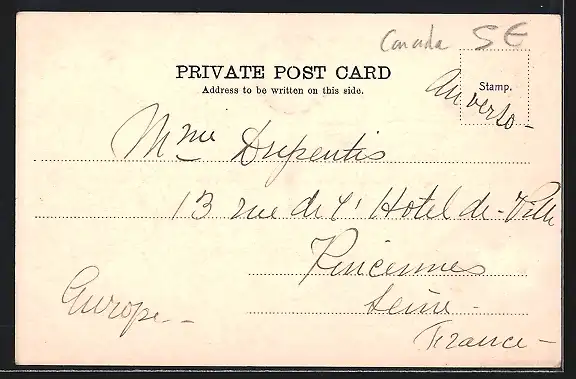 Canada 5 €
PRIVATE POST CARD
Address to be written on this side.
Stamp.
au verso -
Mme Dupentis
13 rue de l'Hotel de-Ville
Vincennes
Seine -
France -
Europe -